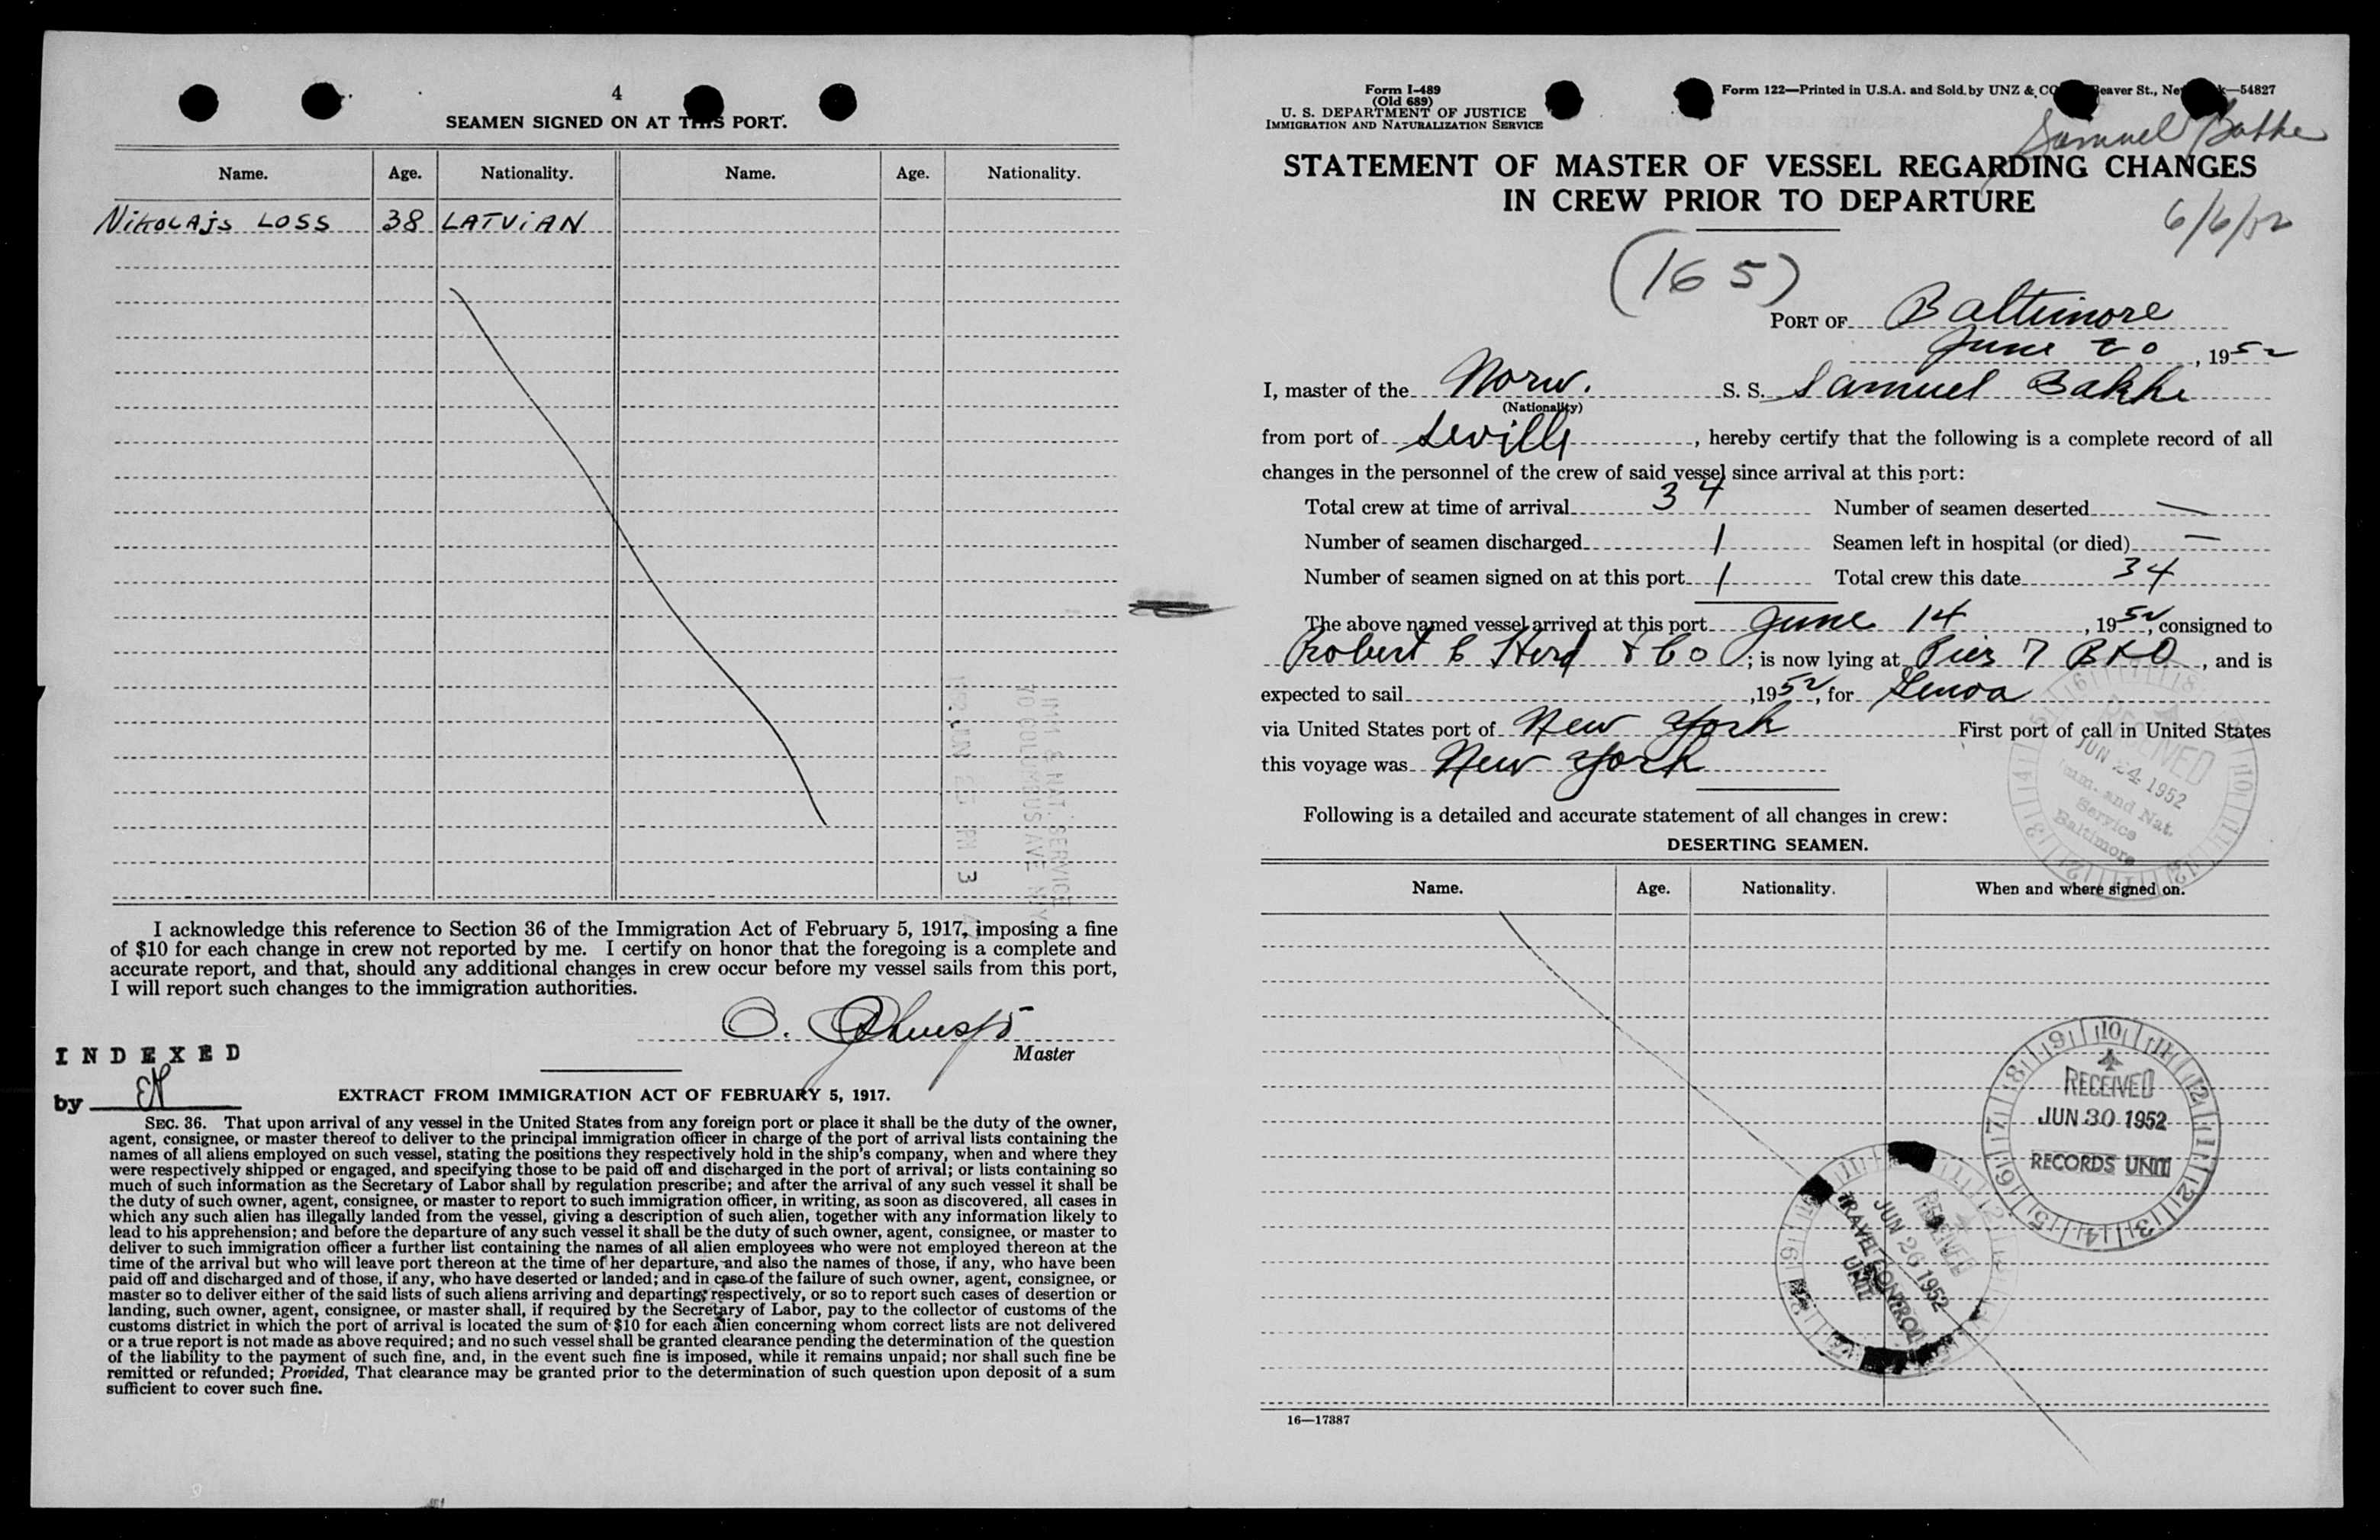 4
SEAMEN SIGNED ON AT THIS PORT.
Name. Age. Nationality. Name. Age. Nationality.
NiKOLAjS LOSS 38 LATViAN
IMM & NAT. SERVICE
70 COLUMBUS AVE N Y
I acknowledge this reference to Section 36 of the Immigration Act of February 5, 1917, imposing a fine
of $10 for each change in crew not reported by me. I certify on honor that the foregoing is a complete and
accurate report, and that, should any additional changes in crew occur before my vessel sails from this port,
I will report such changes to the immigration authorities.
O.
Master
INDEXED
by
EXTRACT FROM IMMIGRATION ACT OF FEBRUARY 5, 1917.
SEC. 36. That upon arrival of any vessel in the United States from any foreign port or place it shall be the duty of the owner,
agent, consignee, or master thereof to deliver to the principal immigration officer in charge of the port of arrival lists containing the
names of all aliens employed on such vessel, stating the positions they respectively hold in the ship's company, when and where they
were respectively shipped or engaged, and specifying those to be paid off and discharged in the port of arrival; or lists containing so
much of such information as the Secretary of Labor shall by regulation prescribe; and after the arrival of any such vessel it shall be
the duty of such owner, agent, consignee, or master to report to such immigration officer, in writing, as soon as discovered, all cases in
which any such alien has illegally landed from the vessel, giving a description of such alien, together with any information likely to
lead to his apprehension; and before the departure of any such vessel it shall be the duty of such owner, agent, consignee, or master to
deliver to such immigration officer a further list containing the names of all alien employees who were not employed thereon at the
time of the arrival but who will leave port thereon at the time of her departure, and also the names of those, if any, who have been
paid off and discharged and of those, if any, who have deserted or landed; and in case of the failure of such owner, agent, consignee, or
master so to deliver either of the said lists of such aliens arriving and departing, respectively, or so to report such cases of desertion or
landing, such owner, agent, consignee, or master shall, if required by the Secretary of Labor, pay to the collector of customs of the
customs district in which the port of arrival is located the sum of $10 for each alien concerning whom correct lists are not delivered
or a true report is not made as above required; and no such vessel shall be granted clearance pending the determination of the question
of the liability to the payment of such fine, and, in the event such fine is imposed, while it remains unpaid; nor shall such fine be
remitted or refunded; Provided, That clearance may be granted prior to the determination of such question upon deposit of a sum
sufficient to cover such fine.
Form I-489
(Old 689)
U. S. DEPARTMENT OF JUSTICE
IMMIGRATION AND NATURALIZATION SERVICE
Form 122—Printed in U.S.A. and Sold by UNZ & CO Beaver St., New —54827
Samuel Bakke
STATEMENT OF MASTER OF VESSEL REGARDING CHANGES
IN CREW PRIOR TO DEPARTURE
6/6/52
(165)
PORT OF Baltimore
June 20, 1952
I, master of the Norw. S. S. Samuel Bakke
(Nationality)
from port of Seville, hereby certify that the following is a complete record of all
changes in the personnel of the crew of said vessel since arrival at this port:
Total crew at time of arrival 34 Number of seamen deserted —
Number of seamen discharged 1 Seamen left in hospital (or died) —
Number of seamen signed on at this port 1 Total crew this date 34
The above named vessel arrived at this port June 14, 1952, consigned to
Robert C Herd & Co; is now lying at Pier 7 B&O, and is
expected to sail ,1952, for Genoa
via United States port of New York First port of call in United States
this voyage was New York
RECEIVED
JUN 24 1952
Imm. and Nat.
Service
Baltimore
Following is a detailed and accurate statement of all changes in crew:
DESERTING SEAMEN.
Name. Age. Nationality. When and where signed on.
RECEIVED
JUN 30 1952
RECORDS UNIT
RECEIVED
JUN 26 1952
TRAVEL CONTROL
UNIT
16—17387